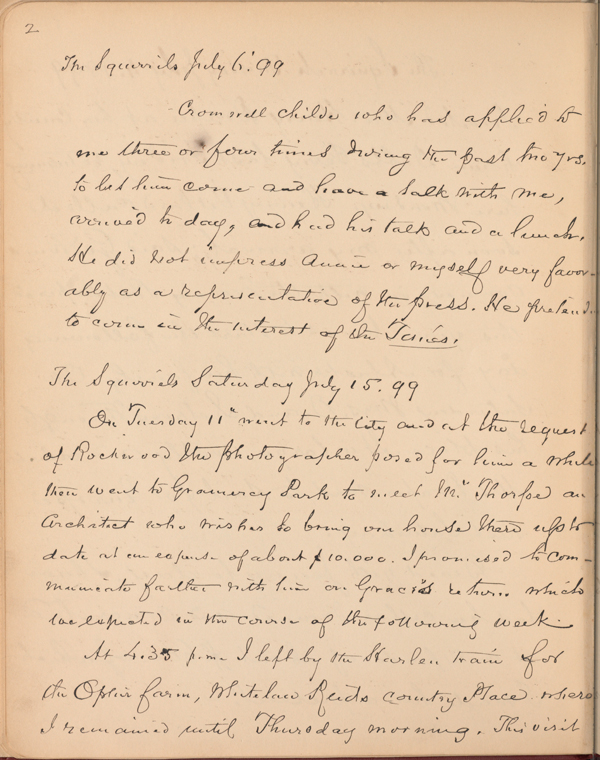 2
The Squirrels July 6' 99
Cromwell Childe who has applied to
me three or four times during the past two yrs.
to let him come and have a talk with me,
arrived to day, and had his talk and a lunch.
He did not impress Annie or myself very favor-
ably as a representative of the press. He pretend
to come in the interest of the Times.
The Squirrels Saturday July 15. 99
On Tuesday 11" went to the City and at the request
of Rockwood the photographer posed for him a while
then went to Gramercy Park to meet Mr. Thorpe an
Architect who wishes to bring our house there up to
date at an expense of about $10.000. I promised to com-
municate farther with him on Gracie's return which
we expected in the course of the following week.
At 4.35 p.m. I left by the Harlem train for
the Ophir farm, Whitelaw Reids country Place where
I remained until Thursday morning. This visit